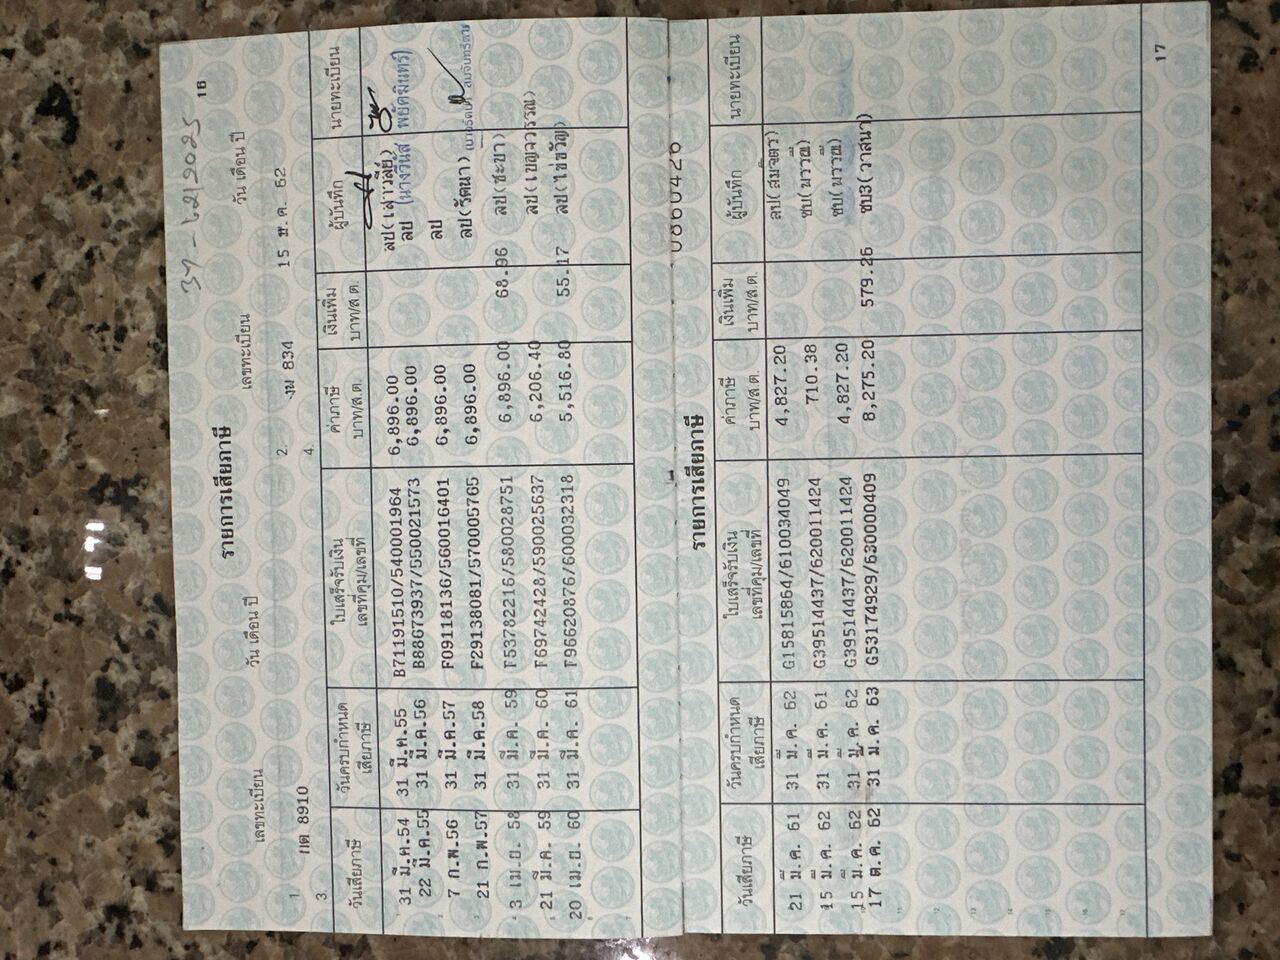 16
รายการเสียภาษี
เลขทะเบียน วัน เดือน ปี เลขทะเบียน วัน เดือน ปี
1. กต 8910 2. งม 834 15 พ.ค. 62
3. 4.
วันเสียภาษี วันครบกำหนดเสียภาษี ใบเสร็จรับเงิน เลขที่คุม/เลขที่ ค่าภาษี บาท/ส.ต. เงินเพิ่ม บาท/ส.ต. ผู้บันทึก นายทะเบียน
31 มี.ค.54 31 มี.ค.55 B71191510/540001964 6,896.00 ลป(เสาวลีย์)
22 มี.ค.55 31 มี.ค.56 B88673937/550021573 6,896.00 ลป
7 ก.พ.56 31 มี.ค.57 F09118136/560016401 6,896.00 ลป
21 ก.พ.57 31 มี.ค.58 F29138081/570005765 6,896.00 ลป(รัตนา)
3 เม.ย. 58 31 มี.ค. 59 F53782216/580028751 6,896.00 68.96 ลป(ชะบา)
21 มี.ค. 59 31 มี.ค. 60 F69742428/590025637 6,206.40 ลป(เบญจวรรณ)
20 เม.ย. 60 31 มี.ค. 61 F96620876/600032318 5,516.80 55.17 ลป(ไข่ขวัญ)
0860426
รายการเสียภาษี
วันเสียภาษี วันครบกำหนดเสียภาษี ใบเสร็จรับเงิน เลขที่คุม/เลขที่ ค่าภาษี บาท/ส.ต. เงินเพิ่ม บาท/ส.ต. ผู้บันทึก นายทะเบียน
21 มี.ค. 61 31 มี.ค. 62 G15815864/610034049 4,827.20 ลป(สมจิตร)
15 มี.ค. 62 31 มี.ค. 61 G39514437/620011424 710.38 ชบ(พววณ)
15 มี.ค. 62 31 มี.ค. 62 G39514437/620011424 4,827.20 ชบ(พววณ)
17 ต.ค. 62 31 ม.ค. 63 G53174929/6300000409 8,275.20 579.26 ชบ3(วาสนา)
17